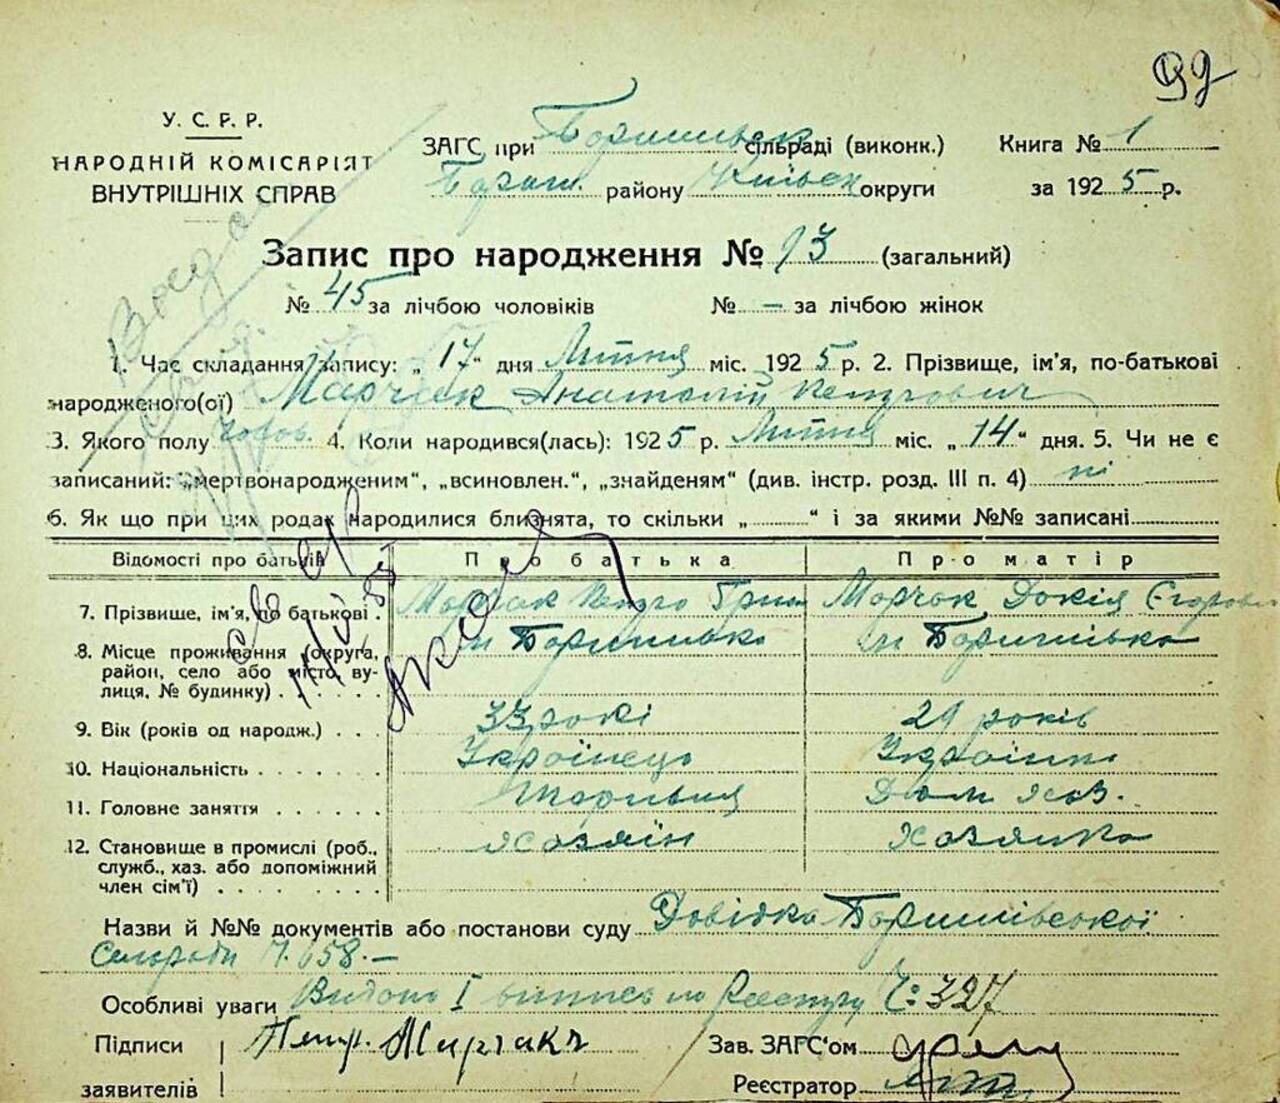 99
У. С. Р. Р.
НАРОДНІЙ КОМІСАРІЯТ
ВНУТРІШНІХ СПРАВ
ЗАГС при Боришпільск сільраді (виконк.) Книга № 1
Бориш. району Київськ округи за 1925 р.
Запис про народження № 93 (загальний)
№ 45 за лічбою чоловіків № — за лічбою жінок
1. Час складання запису: „17“ дня Липня міс. 1925 р. 2. Прізвище, ім'я, по-батькові
народженого(ої) Марчак Анатолій Петрович
3. Якого полу чолов. 4. Коли народився(лась): 1925 р. Липня міс. „14“ дня. 5. Чи не є
записаний: „мертвонародженим“, „всиновлен.“, „знайденям“ (див. інстр. розд. III п. 4) ні
6. Як що при цих родах народилися близнята, то скільки „ “ і за якими №№ записані
Відомості про батьків Про батька Про матір
7. Прізвище, ім'я, по батькові . Марчак Петро Григ Марчак Докія Єгоровн
8. Місце проживання (округа, м Бориспілько м Бориспілько
район, село або місто, ву-
лиця, № будинку) . . . . . .
9. Вік (років од народж.) . . . 33 рокі 29 років
10. Національність . . . . . . . Українець Українка
11. Головне заняття . . . . . . Дом хоз.
12. Становище в промислі (роб., хозяїн хозяйка
служб., хаз. або допоміжний
член сім'ї) . . . . . . . .
Назви й №№ документів або постанови суду Довідка Боришпівської
Сельради Ч. 658. —
Особливі уваги Видано I випись по Реєстру Ч: 327
Підписи Петр. Марчакъ Зав. ЗАГС'ом
заявителів Реєстратор